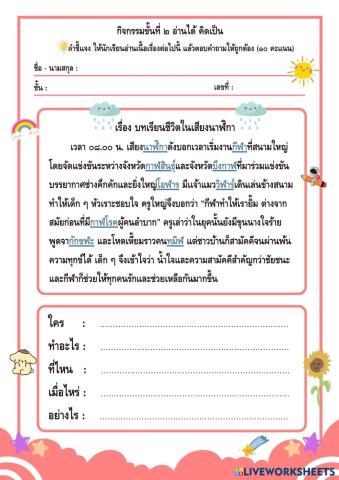 กิจกรรมชั้นที่ ๒ อ่านได้ คิดเป็น
คำชี้แจง ให้นักเรียนอ่านเนื้อเรื่องต่อไปนี้ แล้วตอบคำถามให้ถูกต้อง (๑๐ คะแนน)
ชื่อ - นามสกุล :
ชั้น : เลขที่ :
เรื่อง บทเรียนชีวิตในเสียงนาฬิกา
เวลา ๐๘.๐๐ น. เสียงนาฬิกาดังบอกเวลาเริ่มงานกีฬาที่สนามใหญ่
โดยจัดแข่งขันระหว่างจังหวัดกาฬสินธุ์และจังหวัดบึงกาฬที่มาร่วมแข่งขัน
บรรยากาศช่างคึกคักและยิ่งใหญ่โอฬาร มีแจ้าแมววิฬาร์เดินเล่นข้างสนาม
ทำให้เด็ก ๆ หัวเราะชอบใจ ครูใหญ่จึงบอกว่า "กีฬาทำให้เรายิ้ม ต่างจาก
สมัยก่อนที่มีกาฬโรคผู้คนลำบาก" ครูเล่าว่าในยุคนั้นยังมีขุนนางใจร้าย
พูดจากักขฬะ และโหดเหี้ยมราวคนทมิฬ แต่ชาวบ้านก็สามัคคีจนผ่านพ้น
ความทุกข์ได้ เด็ก ๆ จึงเข้าใจว่า น้ำใจและความสามัคคีสำคัญกว่าชัยชนะ
และกีฬาก็ช่วยให้ทุกคนรักและช่วยเหลือกันมากขึ้น
ใคร :
ทำอะไร :
ที่ไหน :
เมื่อไหร่ :
อย่างไร :
LIVEWORKSHEETS